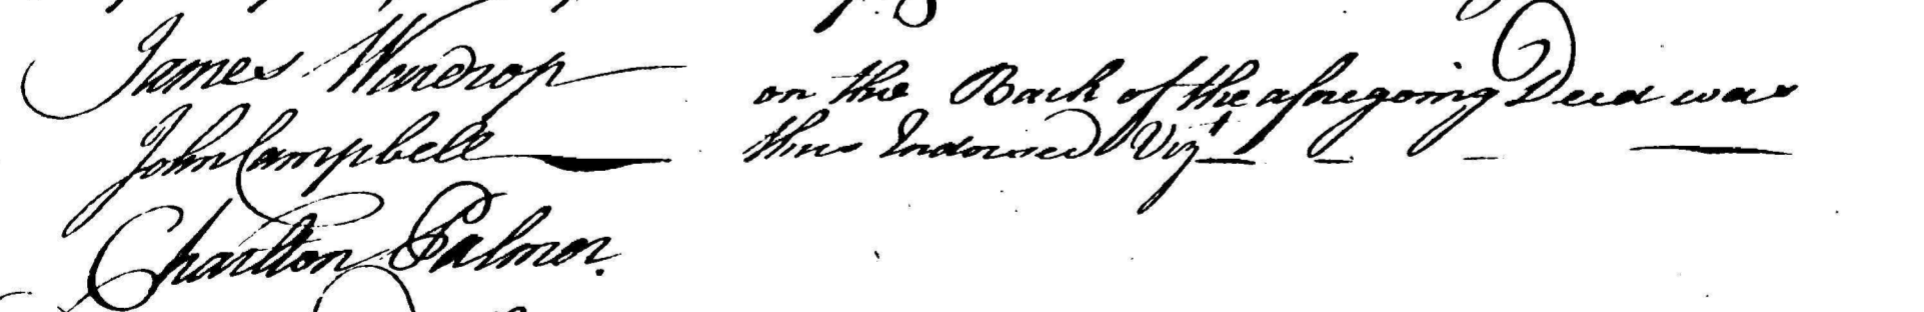 James Wardrop
John Campbell
Charlton Palmer.
on the Back of the aforegoing Deed was
thus Indorsed Vizt